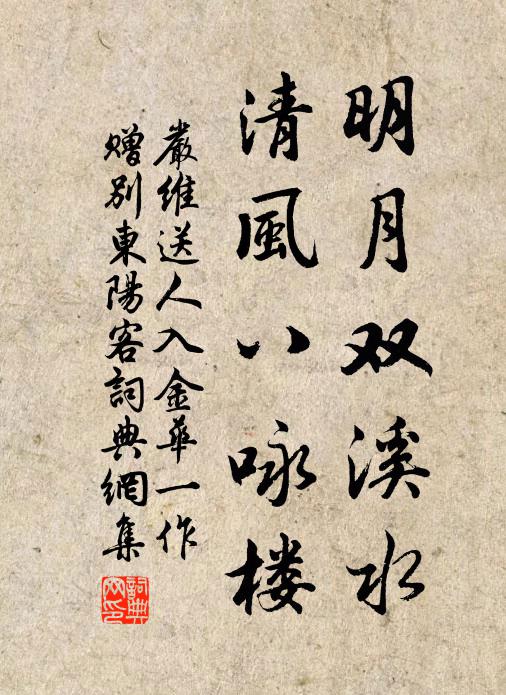 明月双溪水
清風八咏楼
嚴維送人入金華一作
贈別東陽客詞典網集
詞典网印